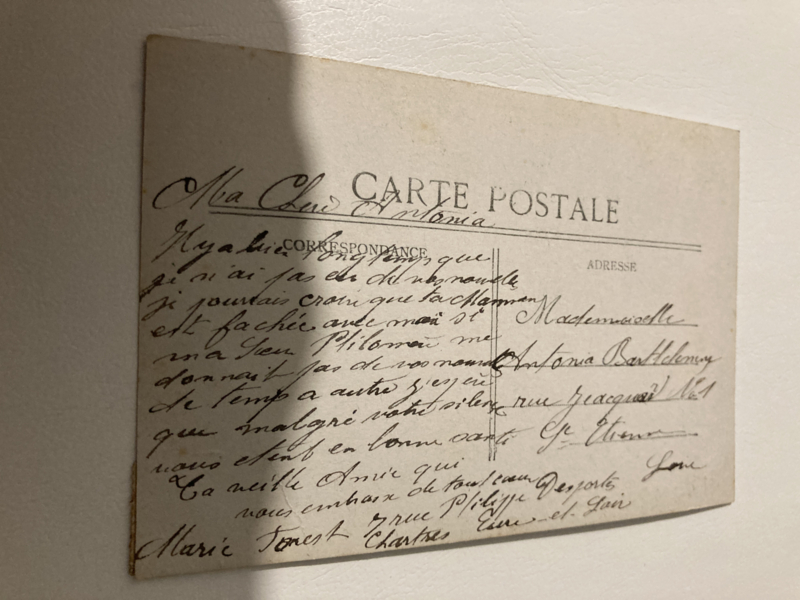 CARTE POSTALE
Ma Cheré Antonia
CORRESPONDANCE
Il y a bien longtemps que
je n'ai pas eu de vos nouvelle
je pourrais croire que ta Maman
est fachée avec moi si
ma Seur Philomen me
donnait pas de vos nouvelle
de temp a autre j'espere
que malgré votre silence
vous etent en bonne santé
Ta veille Amie qui
vous embrasse de tout coeur
Marie Forest 7 rue Philippe Desportes
Chartres Eure-et-Loir
ADRESSE
Mademoiselle
Antonia Barthelemy
rue N° 1
St Etienne
Loire